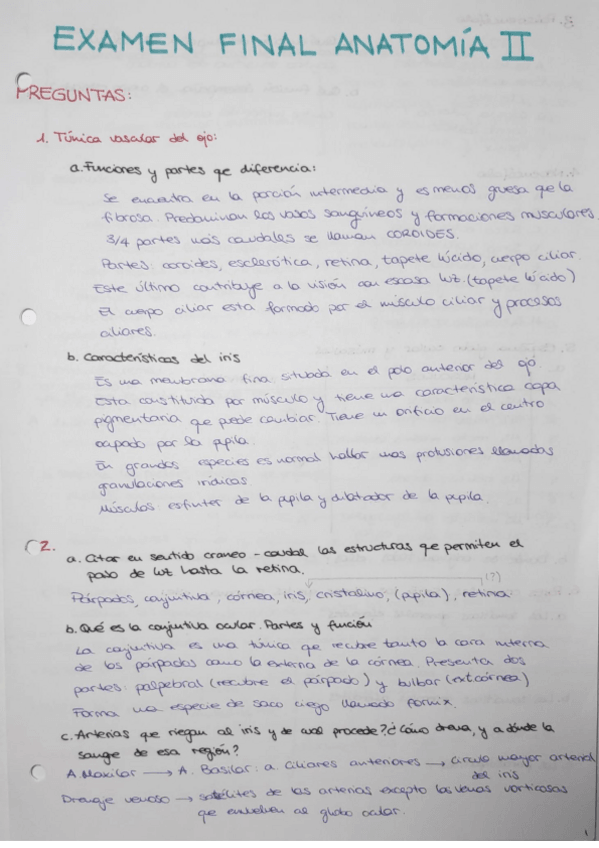 EXAMEN FINAL ANATOMÍA II
PREGUNTAS:
1. Túnica vascular del ojo:
a. Funciones y partes qe diferencia:
Se encuentra en la porción intermedia y es menos gruesa que la
fibrosa. Predominan los vasos sanguíneos y formaciones musculares.
3/4 partes más caudales se llaman COROIDES.
Partes: coroides, esclerótica, retina, tapete lúcido, cuerpo ciliar.
Este último contribuye a la visión con escasa luz. (tapete lúcido)
El cuerpo ciliar esta formado por el músculo ciliar y procesos
ciliares.
b. Características del iris
Es una membrana fina situada en el polo anterior del ojo.
Esta constituida por músculo y tiene una característica capa
pigmentaria que puede cambiar. Tiene un orificio en el centro
ocupado por la pupila.
En grandes especies es normal hallar unas protusiones llamadas
granulaciones irídicas
Músculos esfínter de la pupila y dilatador de la pupila.
2.
a. Citar en sentido craneo-caudal las estructuras qe permiten el
paso de luz hasta la retina.
(?)
Párpados, conjuntiva, córnea, iris, cristalino, (pupila), retina.
b. Qué es la conjuntiva ocular. Partes y función
La conjuntiva es una túnica que recubre tanto la cara interna
de los párpados como la externa de la córnea. Presenta dos
partes: palpebral (recubre el párpado) y bulbar (ext córnea)
Forma una especie de saco ciego llamado fornix.
c. Arterias que riegan al iris y de cual procede? ¿Cómo drena, y a dónde la
sangre de esa región?
A Maxilar → A. Basilar: a. ciliares anteriores → círculo mayor arterial
del iris
Drenaje venoso → satélites de las arterias excepto las venas vorticosas
que envuelven al globo ocular.
1